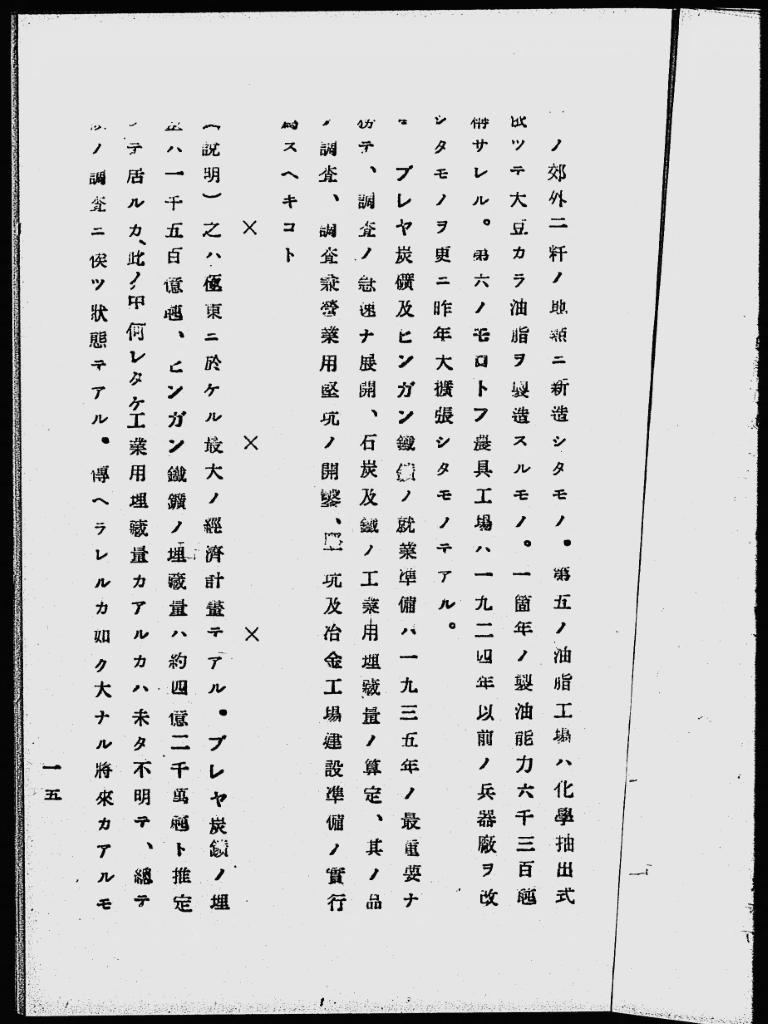 ノ郊外二粁ノ地點ニ新造シタモノ。第五ノ油脂工場ハ化學抽出式
依ツテ大豆カラ油脂ヲ製造スルモノ。一箇年ノ製油能力六千三百瓲
稱サレル。第六ノモロトフ農具工場ハ一九二四年以前ノ兵器廠ヲ改
シタモノヲ更ニ昨年大擴張シタモノテアル。
ブレヤ炭礦及ヒンガン鐵鑛ノ就業準備ハ一九三五年ノ最重要ナ
務テ、調査ノ急速ナ展開、石炭及鐵ノ工業用埋藏量ノ算定、其ノ品
ノ調査、調査兼營業用竪坑ノ開鑿、坑及冶金工場建設準備ノ實行
爲スヘキコト
×××
(說明)之ハ極東ニ於ケル最大ノ經濟計畫テアル。ブレヤ炭鑛ノ埋
ハ一千五百億瓲、ヒンガン鐵鑛ノ埋藏量ハ約四億二千萬瓲ト推定
テ居ルカ、此ノ中何レタケ工業用埋藏量カアルカハ未タ不明テ、總テ
ノ調査ニ俟ツ狀態テアル。傳ヘラレルカ如ク大ナル將來カアルモ
一五